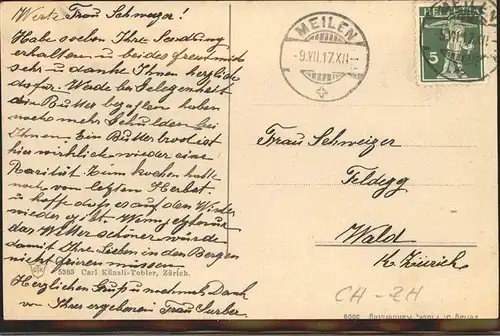 Werte Frau Schweizer!
Habe soeben Ihre Sendung
erhalten u beides freut mich
sehr u danke Ihnen herzlich
dafür. Werde bei Gelegenheit
den Butter bezahlen haben
noch mehr Schulden bei
Ihnen. Ein Butterbrod ist
hier wirklich wieder eine
Rarität. Zum kochen hatte
noch vom letzten Herbst
u hoffe dass es auf den Winter
wieder gibt. Wenn jetzt nur
das Wetter schöner würde
damit Ihre Lieben in den Bergen
nicht frieren müssen
Herzlichen Gruss u nochmals Dank
von Ihrer ergebenen Frau Surber
5383 Carl Künzli-Tobler, Zürich.
MEILEN
-9.VII.17.XII-
HELVETIA
5
Frau Schweizer
Feldegg
Wald
Kt. Zürich
CH-ZH
3009